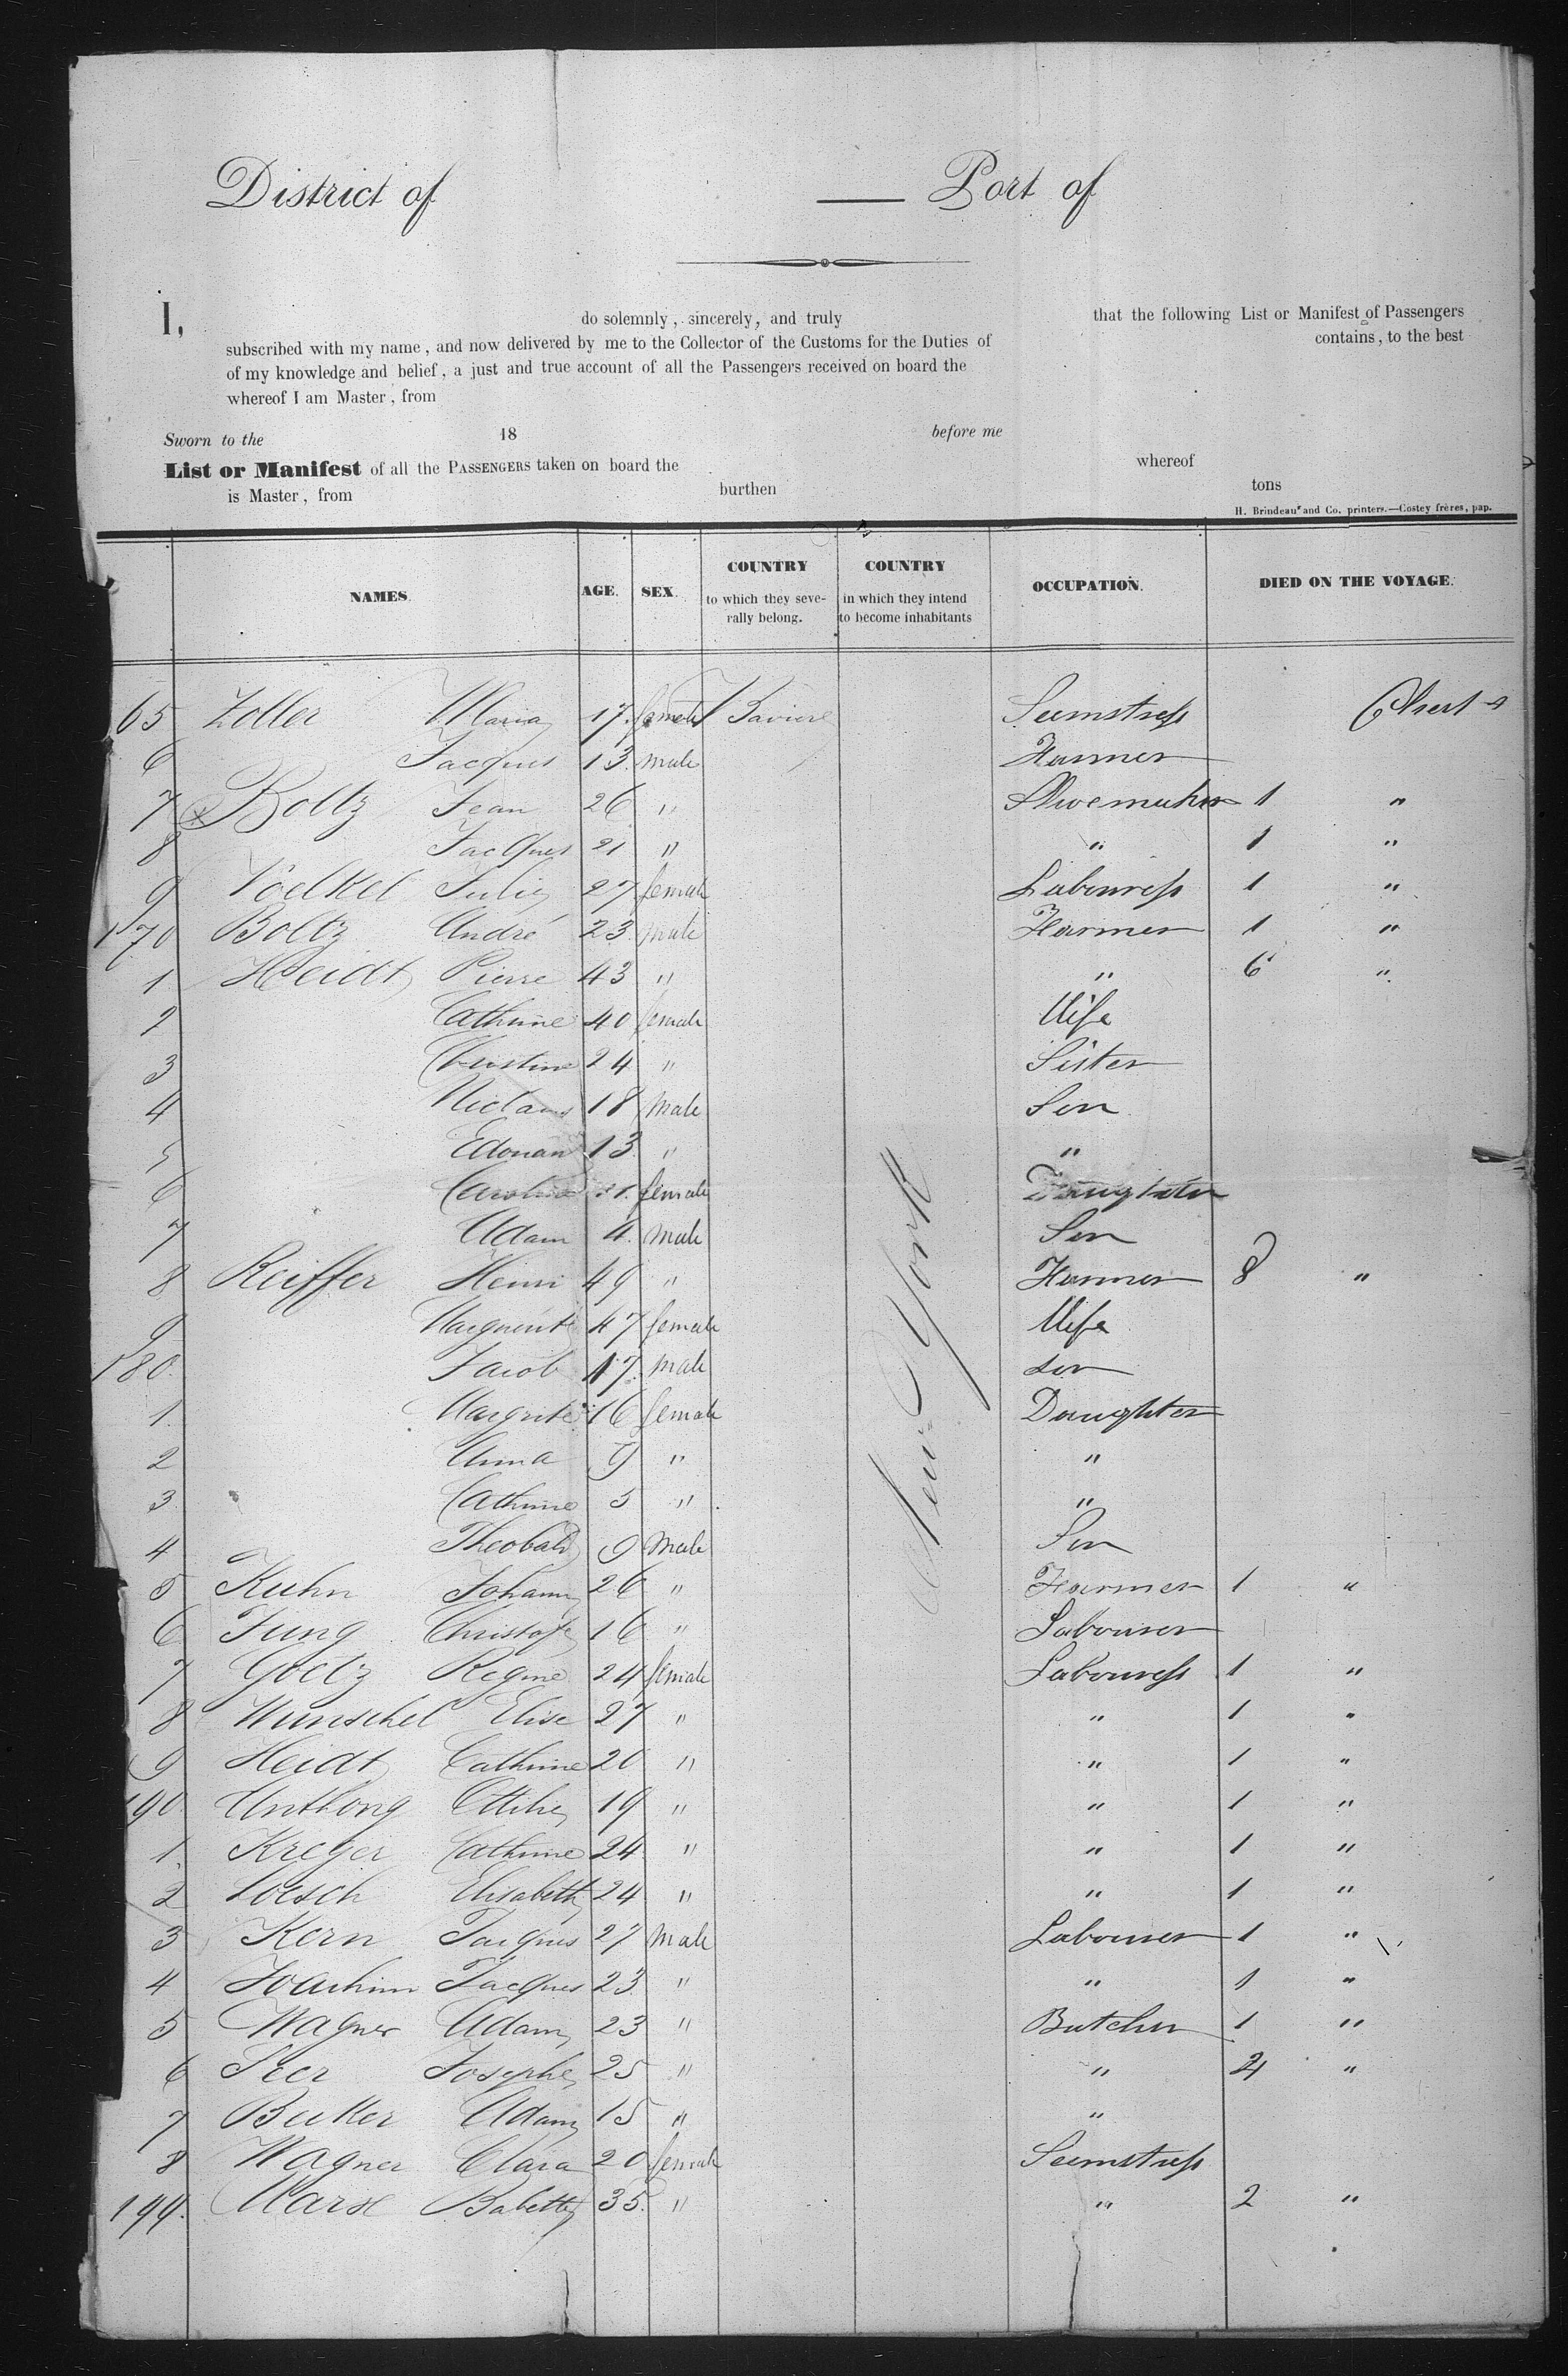 District of — Port of
I, do solemnly, sincerely, and truly that the following List or Manifest of Passengers
subscribed with my name, and now delivered by me to the Collector of the Customs for the Duties of contains, to the best
of my knowledge and belief, a just and true account of all the Passengers received on board the
whereof I am Master, from
Sworn to the 18 before me
List or Manifest of all the PASSENGERS taken on board the whereof
is Master, from burthen tons
H. Brindeau and Co. printers.—Costey frères, pap.
NAMES. AGE. SEX. COUNTRY to which they severally belong. COUNTRY in which they intend to become inhabitants OCCUPATION. DIED ON THE VOYAGE.
New York
65 Zoller Maria 17 female Baviere Seemstress
6 Jacques 13 male Farmer
7 Boltz Jean 26 " Shoemaker 1 "
8 Jacques 21 " " 1 "
9 Voelkel Julie 27 female Labouress 1 "
170 Boltz André 23 male Farmer 1 "
1 Heidt Pierre 43 " " 6 "
2 Cathrine 40 female Wife
3 Christine 24 " Sister
4 Niclaus 18 male Son
5 Edouard 13 " "
6 Caroline female Daughter
7 Adam 4 male Son
8 Reiffer Henri 49 " Farmer 8 "
9 Marguerite 47 female Wife
180 Jacob 17 male son
1 Margrite 16 female Daughter
2 Anna 9 " "
3 Cathrine 5 " "
4 Theobald 9 male Son
5 Kuhn Johann 26 " Farmer 1 "
6 Jung Christofe 16 " Labourer
7 Goetz Regine 24 female Labouress 1 "
8 Wunschel Elise 27 " " 1 "
9 Heidt Cathrine 20 " " 1 "
190 Ottilie 19 " " 1 "
1 Kreger Cathrine 24 " " 1 "
2 Loesch Elisabeth 24 " " 1 "
3 Kern Jacques 27 male Labourer 1 "
4 Joachim Jacques 23 " " 1 "
5 Wagner Adam 23 " Butcher 1 "
6 Josephe 25 " " 2 "
7 Adam 15 " "
8 Wagner Clara 20 female Seemstress
199 Marx Babette 35 " " 2 "